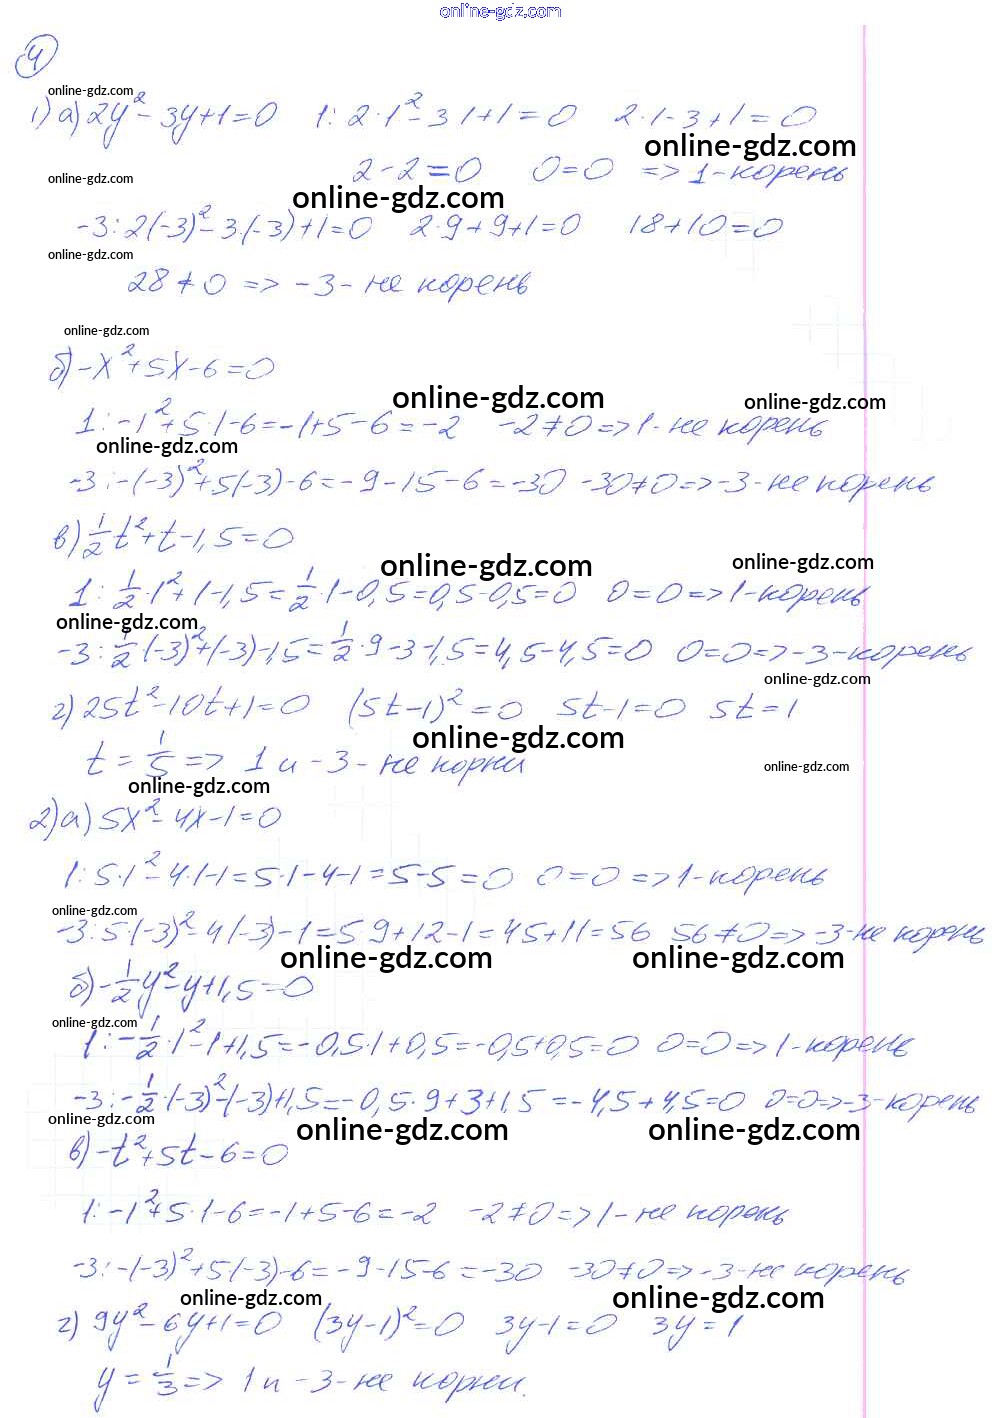 online-gdz.com
4
online-gdz.com
1) а) 2y² - 3y + 1 = 0   1: 2·1² - 3·1 + 1 = 0   2·1 - 3 + 1 = 0
online-gdz.com
2 - 2 = 0   0 = 0 => 1 - корень
online-gdz.com online-gdz.com
-3: 2(-3)² - 3·(-3) + 1 = 0   2·9 + 9 + 1 = 0   18 + 10 = 0
online-gdz.com
28 ≠ 0 => -3 - не корень
online-gdz.com
б) -x² + 5x - 6 = 0
online-gdz.com online-gdz.com
1: -1² + 5·1 - 6 = -1 + 5 - 6 = -2   -2 ≠ 0 => 1 - не корень
online-gdz.com
-3: -(-3)² + 5(-3) - 6 = -9 - 15 - 6 = -30   -30 ≠ 0 => -3 - не корень
в) 1/2 t² + t - 1,5 = 0
online-gdz.com online-gdz.com
1: 1/2·1² + 1 - 1,5 = 1/2·1 - 0,5 = 0,5 - 0,5 = 0   0 = 0 => 1 - корень
online-gdz.com
-3: 1/2·(-3)² + (-3) - 1,5 = 1/2·9 - 3 - 1,5 = 4,5 - 4,5 = 0   0 = 0 => -3 - корень
online-gdz.com
г) 25t² - 10t + 1 = 0   (5t - 1)² = 0   5t - 1 = 0   5t = 1
online-gdz.com
t = 1/5 => 1 и -3 - не корни
online-gdz.com
online-gdz.com
2) а) 5x² - 4x - 1 = 0
1: 5·1² - 4·1 - 1 = 5·1 - 4 - 1 = 5 - 5 = 0   0 = 0 => 1 - корень
online-gdz.com
-3: 5·(-3)² - 4(-3) - 1 = 5·9 + 12 - 1 = 45 + 11 = 56   56 ≠ 0 => -3 - не корень
online-gdz.com online-gdz.com
б) -1/2 y² - y + 1,5 = 0
online-gdz.com
1: -1/2·1² - 1 + 1,5 = -0,5·1 + 0,5 = -0,5 + 0,5 = 0   0 = 0 => 1 - корень
-3: -1/2·(-3)² - (-3) + 1,5 = -0,5·9 + 3 + 1,5 = -4,5 + 4,5 = 0   0 = 0 => -3 - корень
online-gdz.com online-gdz.com online-gdz.com
в) -t² + 5t - 6 = 0
1: -1² + 5·1 - 6 = -1 + 5 - 6 = -2   -2 ≠ 0 => 1 - не корень
-3: -(-3)² + 5·(-3) - 6 = -9 - 15 - 6 = -30   -30 ≠ 0 => -3 - не корень
online-gdz.com online-gdz.com
г) 9y² - 6y + 1 = 0   (3y - 1)² = 0   3y - 1 = 0   3y = 1
y = 1/3 => 1 и -3 - не корни.